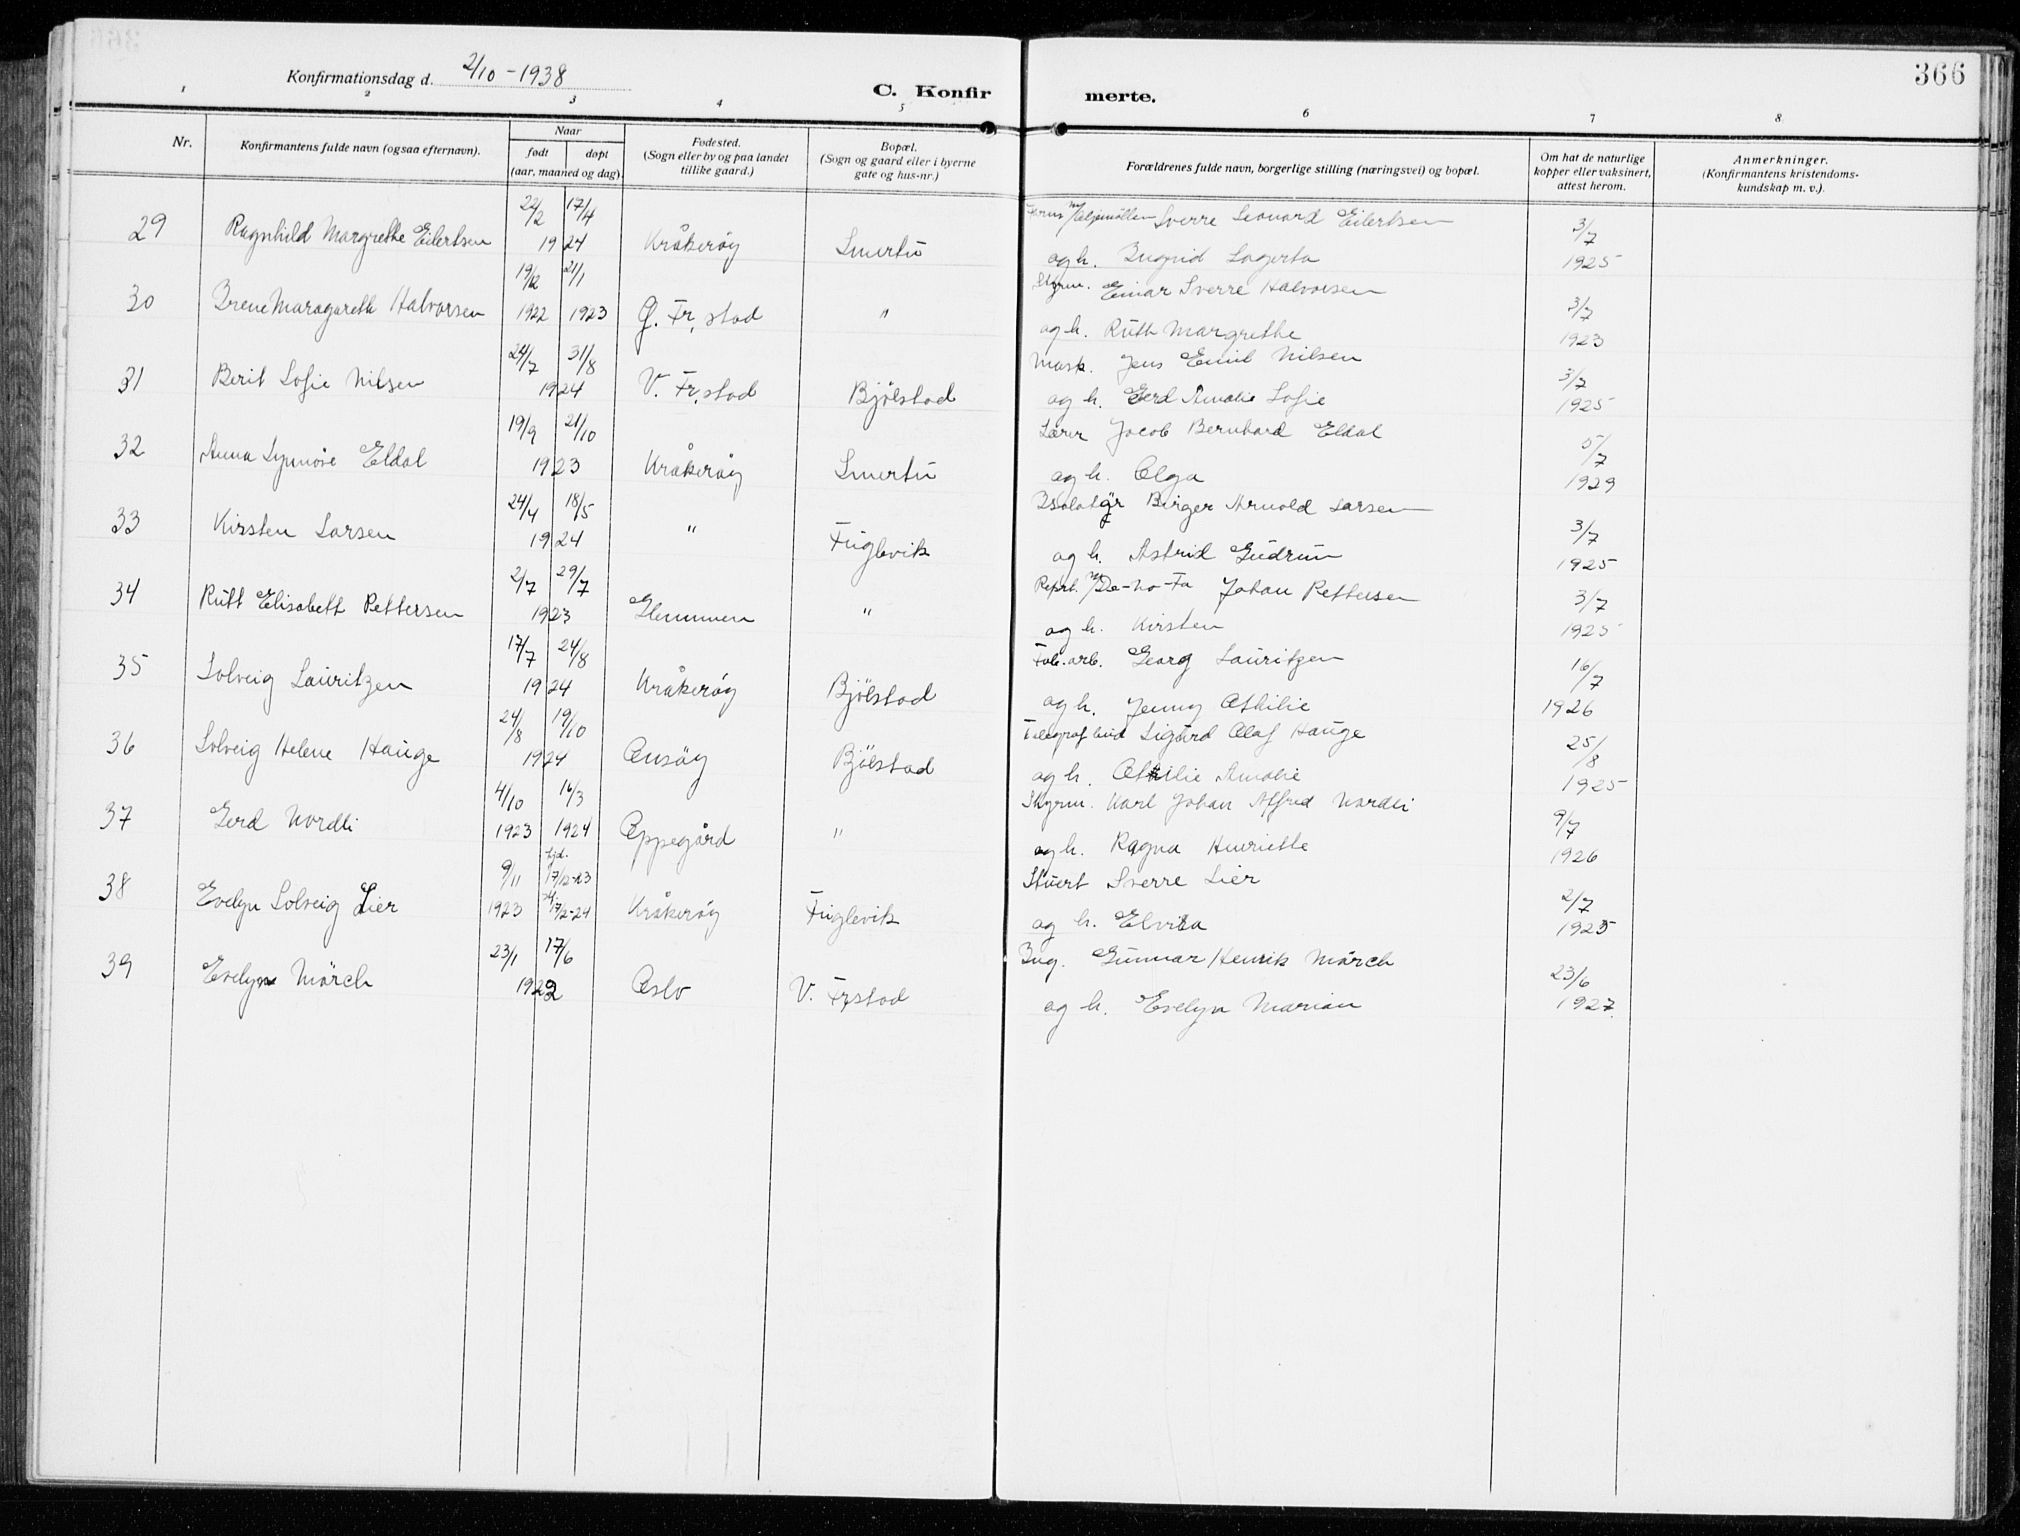 366
Konfirmationsdag d. 2/10 - 1938
C. Konfirmerte.
1 2 3 4 5 6 7 8
Nr.
Konfirmantens fulde navn (ogsaa efternavn).
Naar
født døpt
(aar, maaned og dag)
Fødested.
(Sogn eller by og paa landet
tillike gaard.)
Bopæl.
(Sogn og gaard eller i byerne
gate og hus-nr.)
Forældrenes fulde navn, borgerlige stilling (næringsvei) og bopæl.
Om hat de naturlige
kopper eller vaksinert,
attest herom.
Anmerkninger.
(Konfirmantens kristendoms-
kundskap m. v.).
22/2 17/4 Sverre Leonard Eilertsen 3/7
29 Ragnhild Margrethe Eilertsen 1924 Kråkerøy Smertu og h. Ingrid Lagerta 1925
19/12 21/1 Styrm. Einar Sverre Halvorsen 3/7
30 Irene Maragarethe Halvorsen 1922 1923 G. Fr,stad " og h. Ruth Margrethe 1923
24/7 31/8 Mask. Jens Emil Nilsen 3/7
31 Berit Sofie Nilsen 1924 V. Fr,stad Bjølstad og h. Gerd Amalie Sofie 1925
19/9 21/10 Lærer Jacob Bernhard Eldal 5/7
32 Anna Synnøve Eldal 1923 Kråkerøy Smertu og h. Olga 1929
24/4 18/5 Birger Arnold Larsen 3/7
33 Kirsten Larsen 1924 " Fuglevik og h. Astrid Gudrun 1925
2/7 29/7 Reprt. v/De-No-Fa Johan Pettersen 3/7
34 Rutt Elisabeth Pettersen 1923 Glemmen " og h. Kirsten 1925
17/7 24/8 Fab.arb. Georg Lauritzen 16/7
35 Solveig Lauritzen 1924 Kråkerøy Bjølstad og h. Jenny Othilie 1926
24/8 19/10 Sigurd Olaf Hauge 25/8
36 Solveig Helene Hauge 1924 Onsøy Bjølstad og h. Othilie Amalie 1925
4/10 16/3 Styrm. Karl Johan Alfred Nordli 9/7
37 Gerd Nordli 1923 1924 Oppegård " og h. Ragna Henriette 1926
9/11 hjd. 17/12-23 Stuert Sverre Lier 2/7
38 Evelyn Solveig Lier 1923 17/2-24 Kråkerøy Fuglevik og h. Elvira 1925
23/1 17/6 Ing. Gunnar Henrik Mörch 23/6
39 Evelyn Mörch 1922 Oslo V. Frstad og h. Evelyn Marian 1927.